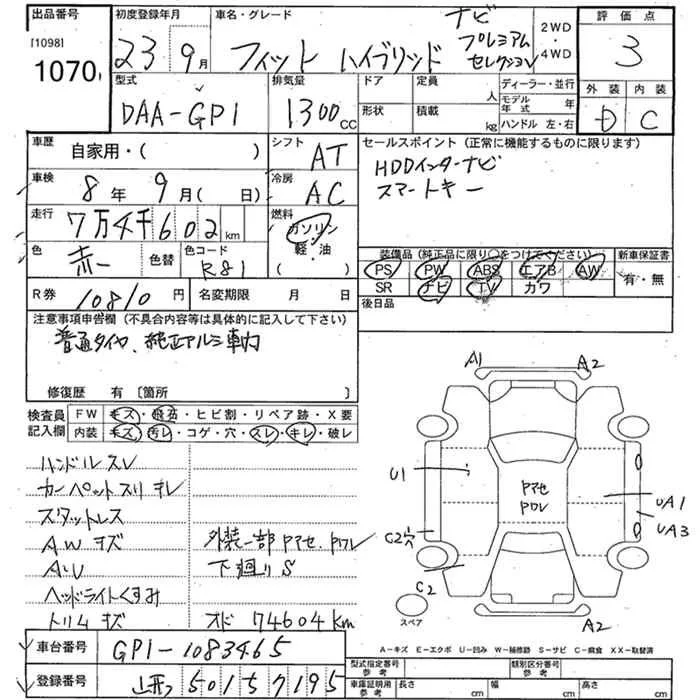 出品番号 初度登録年月 車名・グレード 評価点
[1098]
1070
23 9月 フィット ハイブリッド ナビ プレミアム セレクション 2WD・4WD 3
型式 排気量 ドア 定員 人 ディーラー・並行 外装 内装
DAA-GP1 1300CC 形状 積載 kg モデル年式 年 ハンドル 左・右 D C
車歴 自家用・( ) シフト AT セールスポイント (正常に機能するものに限ります)
HDDインターナビ
スマートキー
車検 8年 9月 ( 日) 冷房 AC
走行 7万4千602km 燃料 ガソリン 軽・油 ( )
色 赤 色替 色コード R81
装備品 (純正品に限り○をつけてください) 新車保証書
PS PW ABS エアB AW 有・無
SR ナビ TV カワ
R券 10810円 名変期限 月 日 後日品
注意事項申告欄 (不具合内容等は具体的に記入して下さい)
普通タイヤ、純正アルミ車内
修復歴 有 [箇所 ]
検査員記入欄 FW キズ・飛石・ヒビ割・リペア跡・X要
内装 キズ・汚レ・コゲ・穴・スレ・キレ・破レ
ハンドルスレ
カーペットスリキレ
スタットレス
AWキズ 外装一部Pアセ.Pワレ
A・U 下廻りS
ヘッドライトくすみ
トリムキズ オド 74604km
A1 A2
U1 Pアセ Pワレ UA1
C2穴 UA3
C2
スペア A2
A-キズ E-エクボ U-凹み W-補修跡 S-サビ C-腐食 XX-取替済
車台番号 GP1-1083465
登録番号 5015 7195
型式指定番号 参考 類別区分番号 参考
車庫証明用 参考 長さ cm 幅 cm 高さ cm